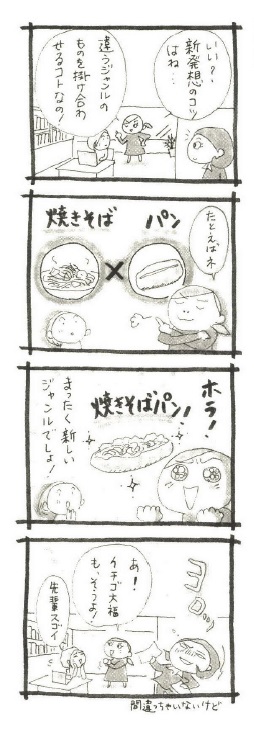 いい?、
新発想のコツ
はね…
違うジャンルの
ものを掛け合わ
せるコトなの!
たとえばネ
焼きそば
×
パン
ホラ!
焼きそばパン!
まったく新しい
ジャンルでしょ!
ヨロ…
あ!
イチゴ大福
も、そうよ!
先輩スゴイ
間違っちゃいないけど